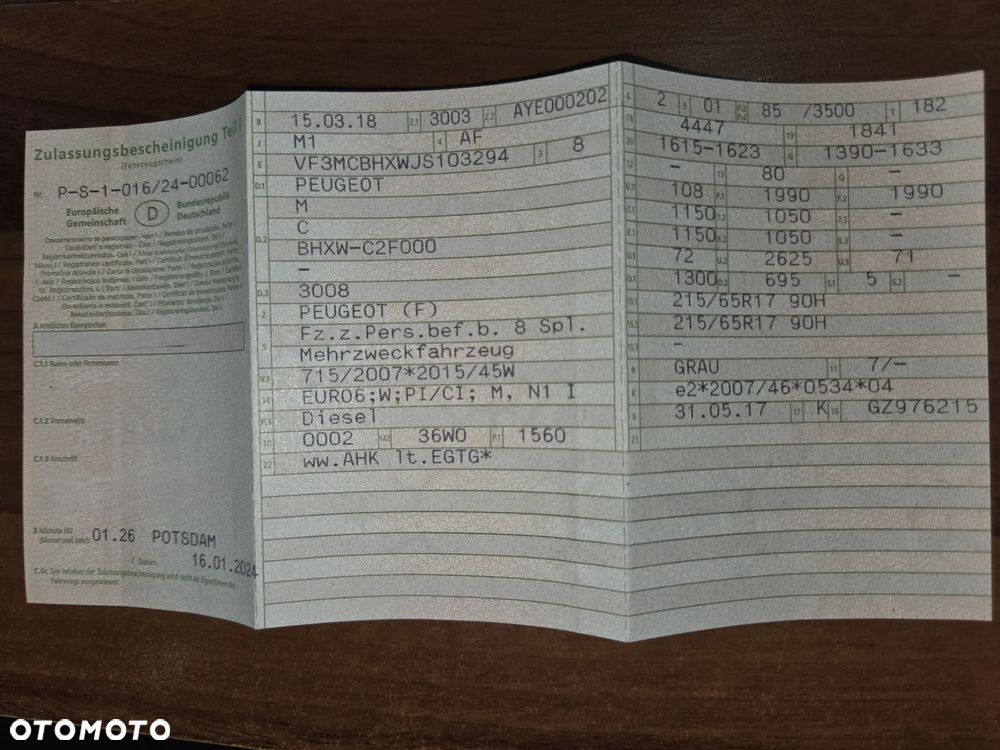 Zulassungsbescheinigung Teil I
(Fahrzeugschein)
Nr. P-S-1-016/24-00062
Europäische Gemeinschaft
D
Bundesrepublik Deutschland
A Amtliches Kennzeichen
C.1.1 Name oder Firmenname
C.1.2 Vorname(n)
C.1.3 Anschrift
X Nächste HU (Monat und Jahr): 01.26 POTSDAM
Datum: 16.01.2024
C.4c Der Inhaber der Zulassungsbescheinigung wird nicht als Eigentümer des
Fahrzeugs ausgewiesen.
B 15.03.18 2.1 3003 2.2 AYE000202
J M1 4 AF
E VF3MCBHXWJS103294 3 8
D.1 PEUGEOT
M
D.2 C
BHXW-C2F000
-
D.3 3008
2 PEUGEOT (F)
5 Fz.z.Pers.bef.b. 8 Spl.
Mehrzweckfahrzeug
V.9 715/2007*2015/45W
14 EURO6;W;PI/CI; M, N1 I
P.3 Diesel
10 0002 14.1 36W0 P.1 1560
22 ww.AHK lt.EGTG*
L 2 9 01 P.2 P.4 85 /3500 T 182
18 4447 19 1841
20 1615-1623 G 1390-1633
12 - 13 80 Q -
V.7 108 F.1 1990 F.2 1990
7.1 1150 7.2 1050 7.3 -
8.1 1150 8.2 1050 8.3 -
U.1 72 U.2 2625 U.3 71
O.1 1300 O.2 695 S.1 5 S.2 -
15.1 215/65R17 90H
15.2 215/65R17 90H
15.3 -
R GRAU 11 7/-
K e2*2007/46*0534*04
6 31.05.17 17 K 16 GZ976215
21
OTOMOTO